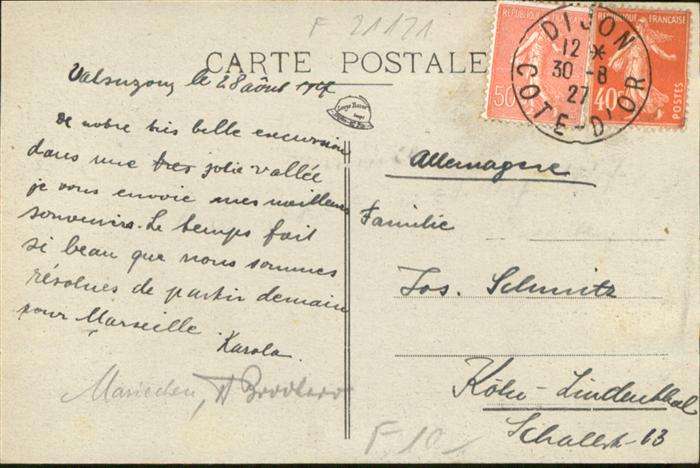 F 21121
CARTE POSTALE
RÉPUBLIQUE FRANÇAISE
50
40
POSTES
DIJON
12 *
30 -8
27
COTE-D'OR
Valsuzon, le 28 août 1927
De notre très belle excursion
dans une très jolie vallée
je vous envoie mes meilleurs
souvenirs. Le temps fait
si beau que nous sommes
résolues de partir demain
pour Marseille.
Karola.
Mariechen,
Allemagne
Familie
Jos. Schmitz
Köln-Lindenthal
Schallstr. 13
F. 10